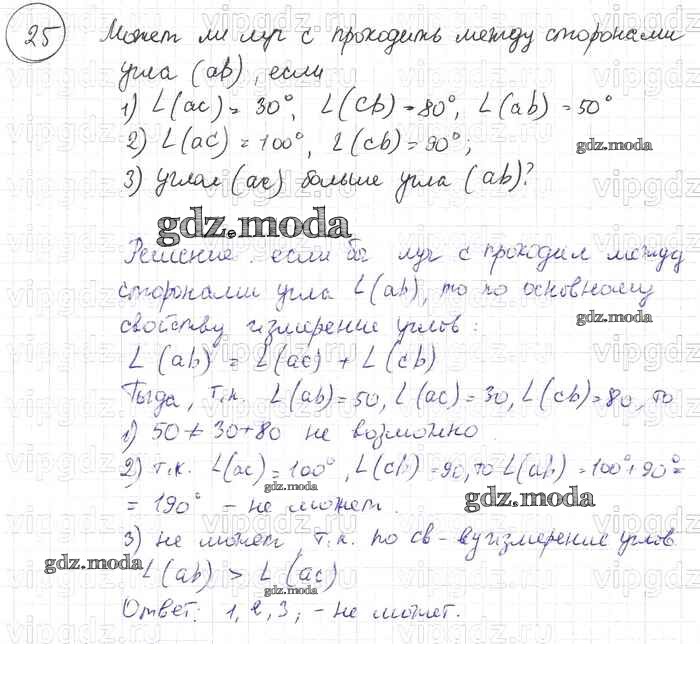 25 Может ли луч c проходить между сторонами
угла (ab), если
1) L(ac) = 30°, L(cb) = 80°, L(ab) = 50°
2) L(ac) = 100°, L(cb) = 90°;
gdz.moda
3) угол (ac) больше угла (ab)?
gdz.moda
Решение: если бы луч c проходил между
сторонами угла L(ab), то по основному
gdz.moda
свойству измерение углов:
L(ab) = L(ac) + L(cb)
Тогда, т.к. L(ab) = 50, L(ac) = 30, L(cb) = 80, то
1) 50 ≠ 30 + 80 не возможно.
2) т.к. L(ac) = 100°, L(cb) = 90, то L(ab) = 100° + 90° =
gdz.moda
= 190° - не может.
gdz.moda
3) не может, т.к. по св-ву измерение углов
gdz.moda
L(ab) > L(ac)
gdz.moda
Ответ: 1, 2, 3; - не может.